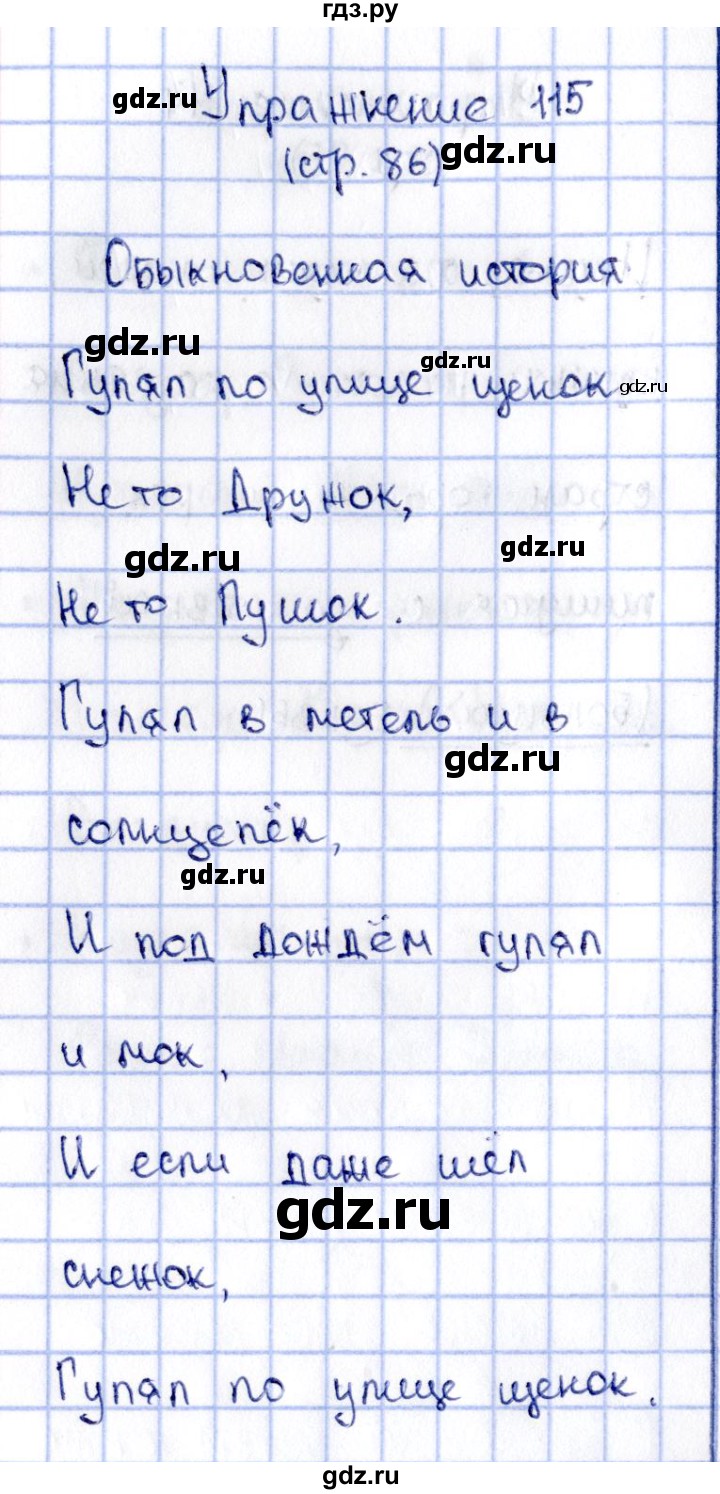 гдз.ру
Упражнение 115
gdz.ru
(стр. 86)
gdz.ru
Обыкновенная история
gdz.ru
gdz.ru
Гулял по улице щенок.
gdz.ru
Не то Дружок,
gdz.ru
gdz.ru
Не то Пушок.
Гулял в метель и в
gdz.ru
солнцепёк,
gdz.ru
И под дождём гулял
и мок,
И если даже шёл
gdz.ru
снежок,
Гулял по улице щенок.
gdz.ru